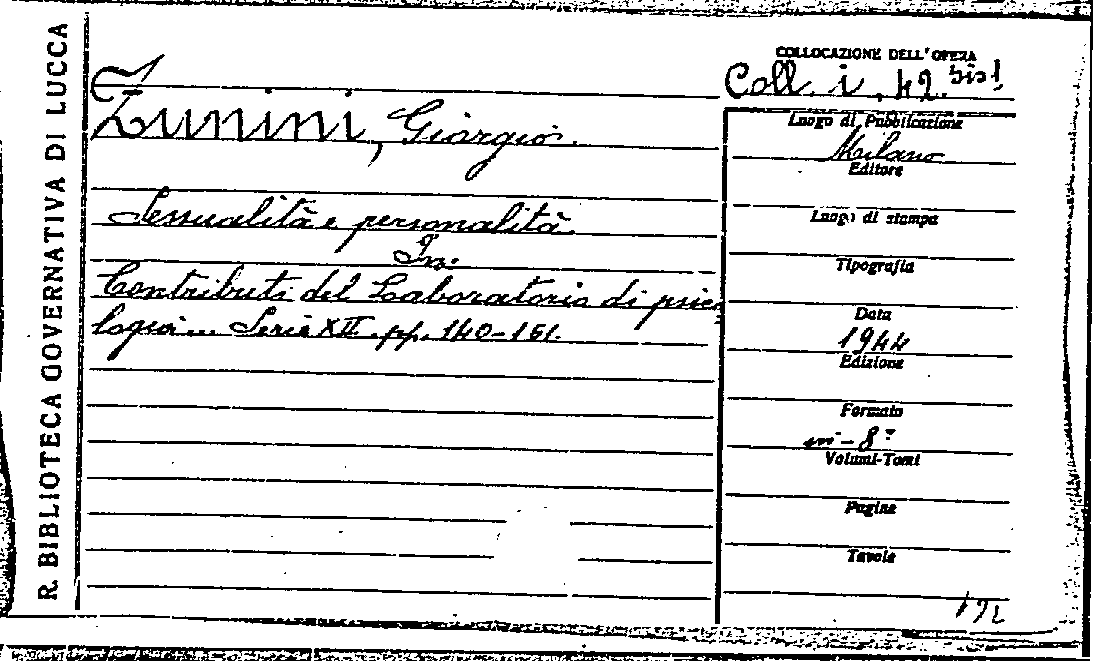 R. BIBLIOTECA GOVERNATIVA DI LUCCA
Zunini, Giorgio.
Sessualità e personalità.
In:
Contributi del Laboratorio di psico
logia... Serie XII. pp. 140-161.
COLLOCAZIONE DELL'OPERA
Coll. i. 42. bis1
Luogo di Pubblicazione
Milano
Editore
Luogo di stampa
Tipografia
Data
1944
Edizione
Formato
in-8°
Volumi-Tomi
Pagine
Tavole